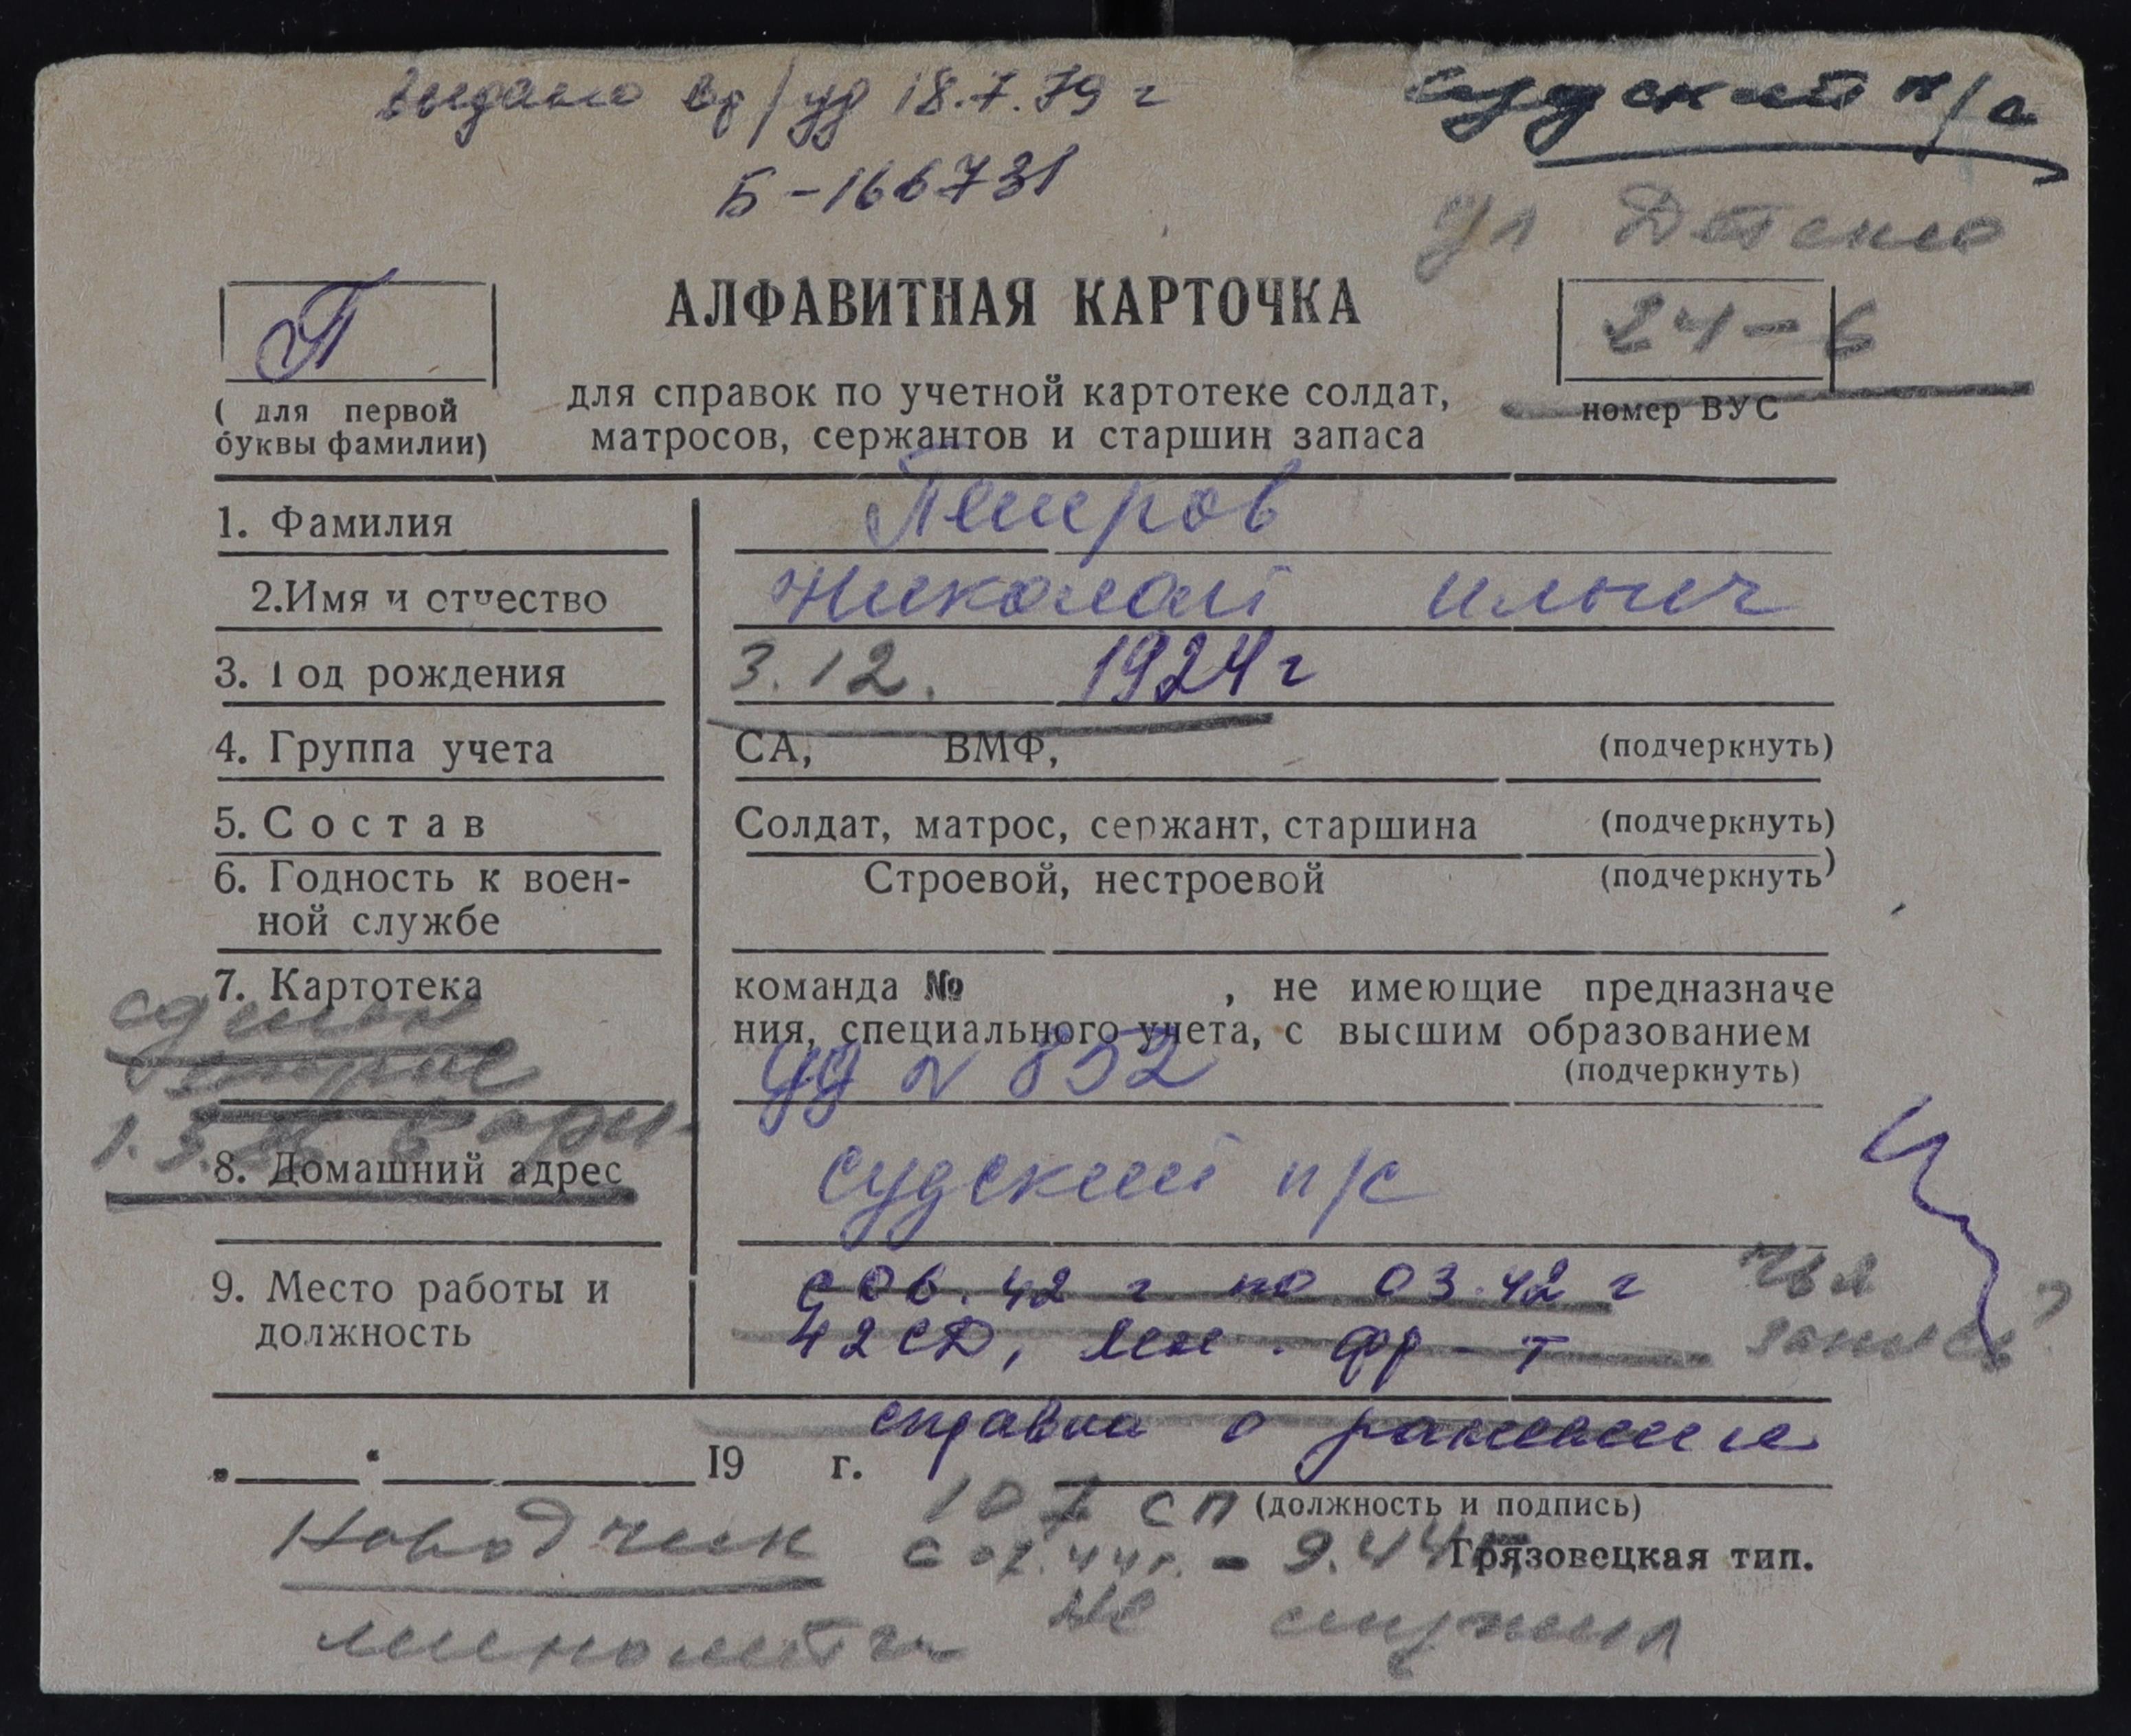 выдано вр/уд 18.7.79 г
Судский п/с
Б-166731
ул Детско
П
АЛФАВИТНАЯ КАРТОЧКА
24-6
( для первой
буквы фамилии)
для справок по учетной картотеке солдат,
матросов, сержантов и старшин запаса
номер ВУС
1. Фамилия
Петров
2.Имя и отчество
Николай Ильич
3. Год рождения
3.12. 1924 г
4. Группа учета
СА, ВМФ, (подчеркнуть)
5. Состав
Солдат, матрос, сержант, старшина (подчеркнуть)
6. Годность к воен-
ной службе
Строевой, нестроевой (подчеркнуть)
7. Картотека
команда № , не имеющие предназначе
ния, специального учета, с высшим образованием
(подчеркнуть)
уд № 852
1.3.
8. Домашний адрес
Судский п/с
9. Место работы и
должность
с 06.42 г по 03.42 г
42 СД, Лен. фр-т
чья
запись?
справка о ранении
19 г.
107 СП
(должность и подпись)
Наводчик
с 07.44г. - 9.44г
Грязовецкая тип.
не служил
миномета